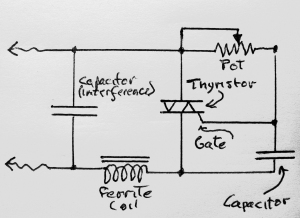 Pot
Capacitor
(interference)
Thyristor
Gate
Ferrite
Coil
Capacitor